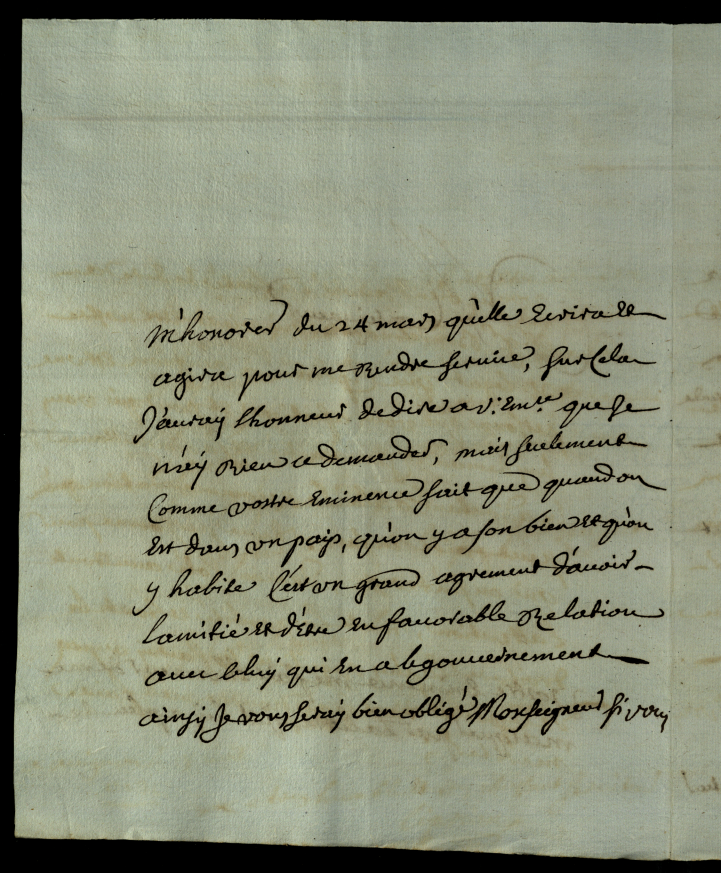 m'honorer du 24 mars qu'elle Ecrira Et
agira pour me rendre service, sur Cela
J'auray l'honneur de dire a v: Em.ce que Je
n'ay rien a demander, mais seulement
Comme vostre Eminence sait que quand on
Est dans un pais, qu'on y a son bien Et qu'on
y habite C'est un grand agrement d'avoir
l'amitié Et d'Etre En favorable Relation
avec celuy qui En a le gouvernement
ainsy Je vous seray bien obligé Monseigneur si vous